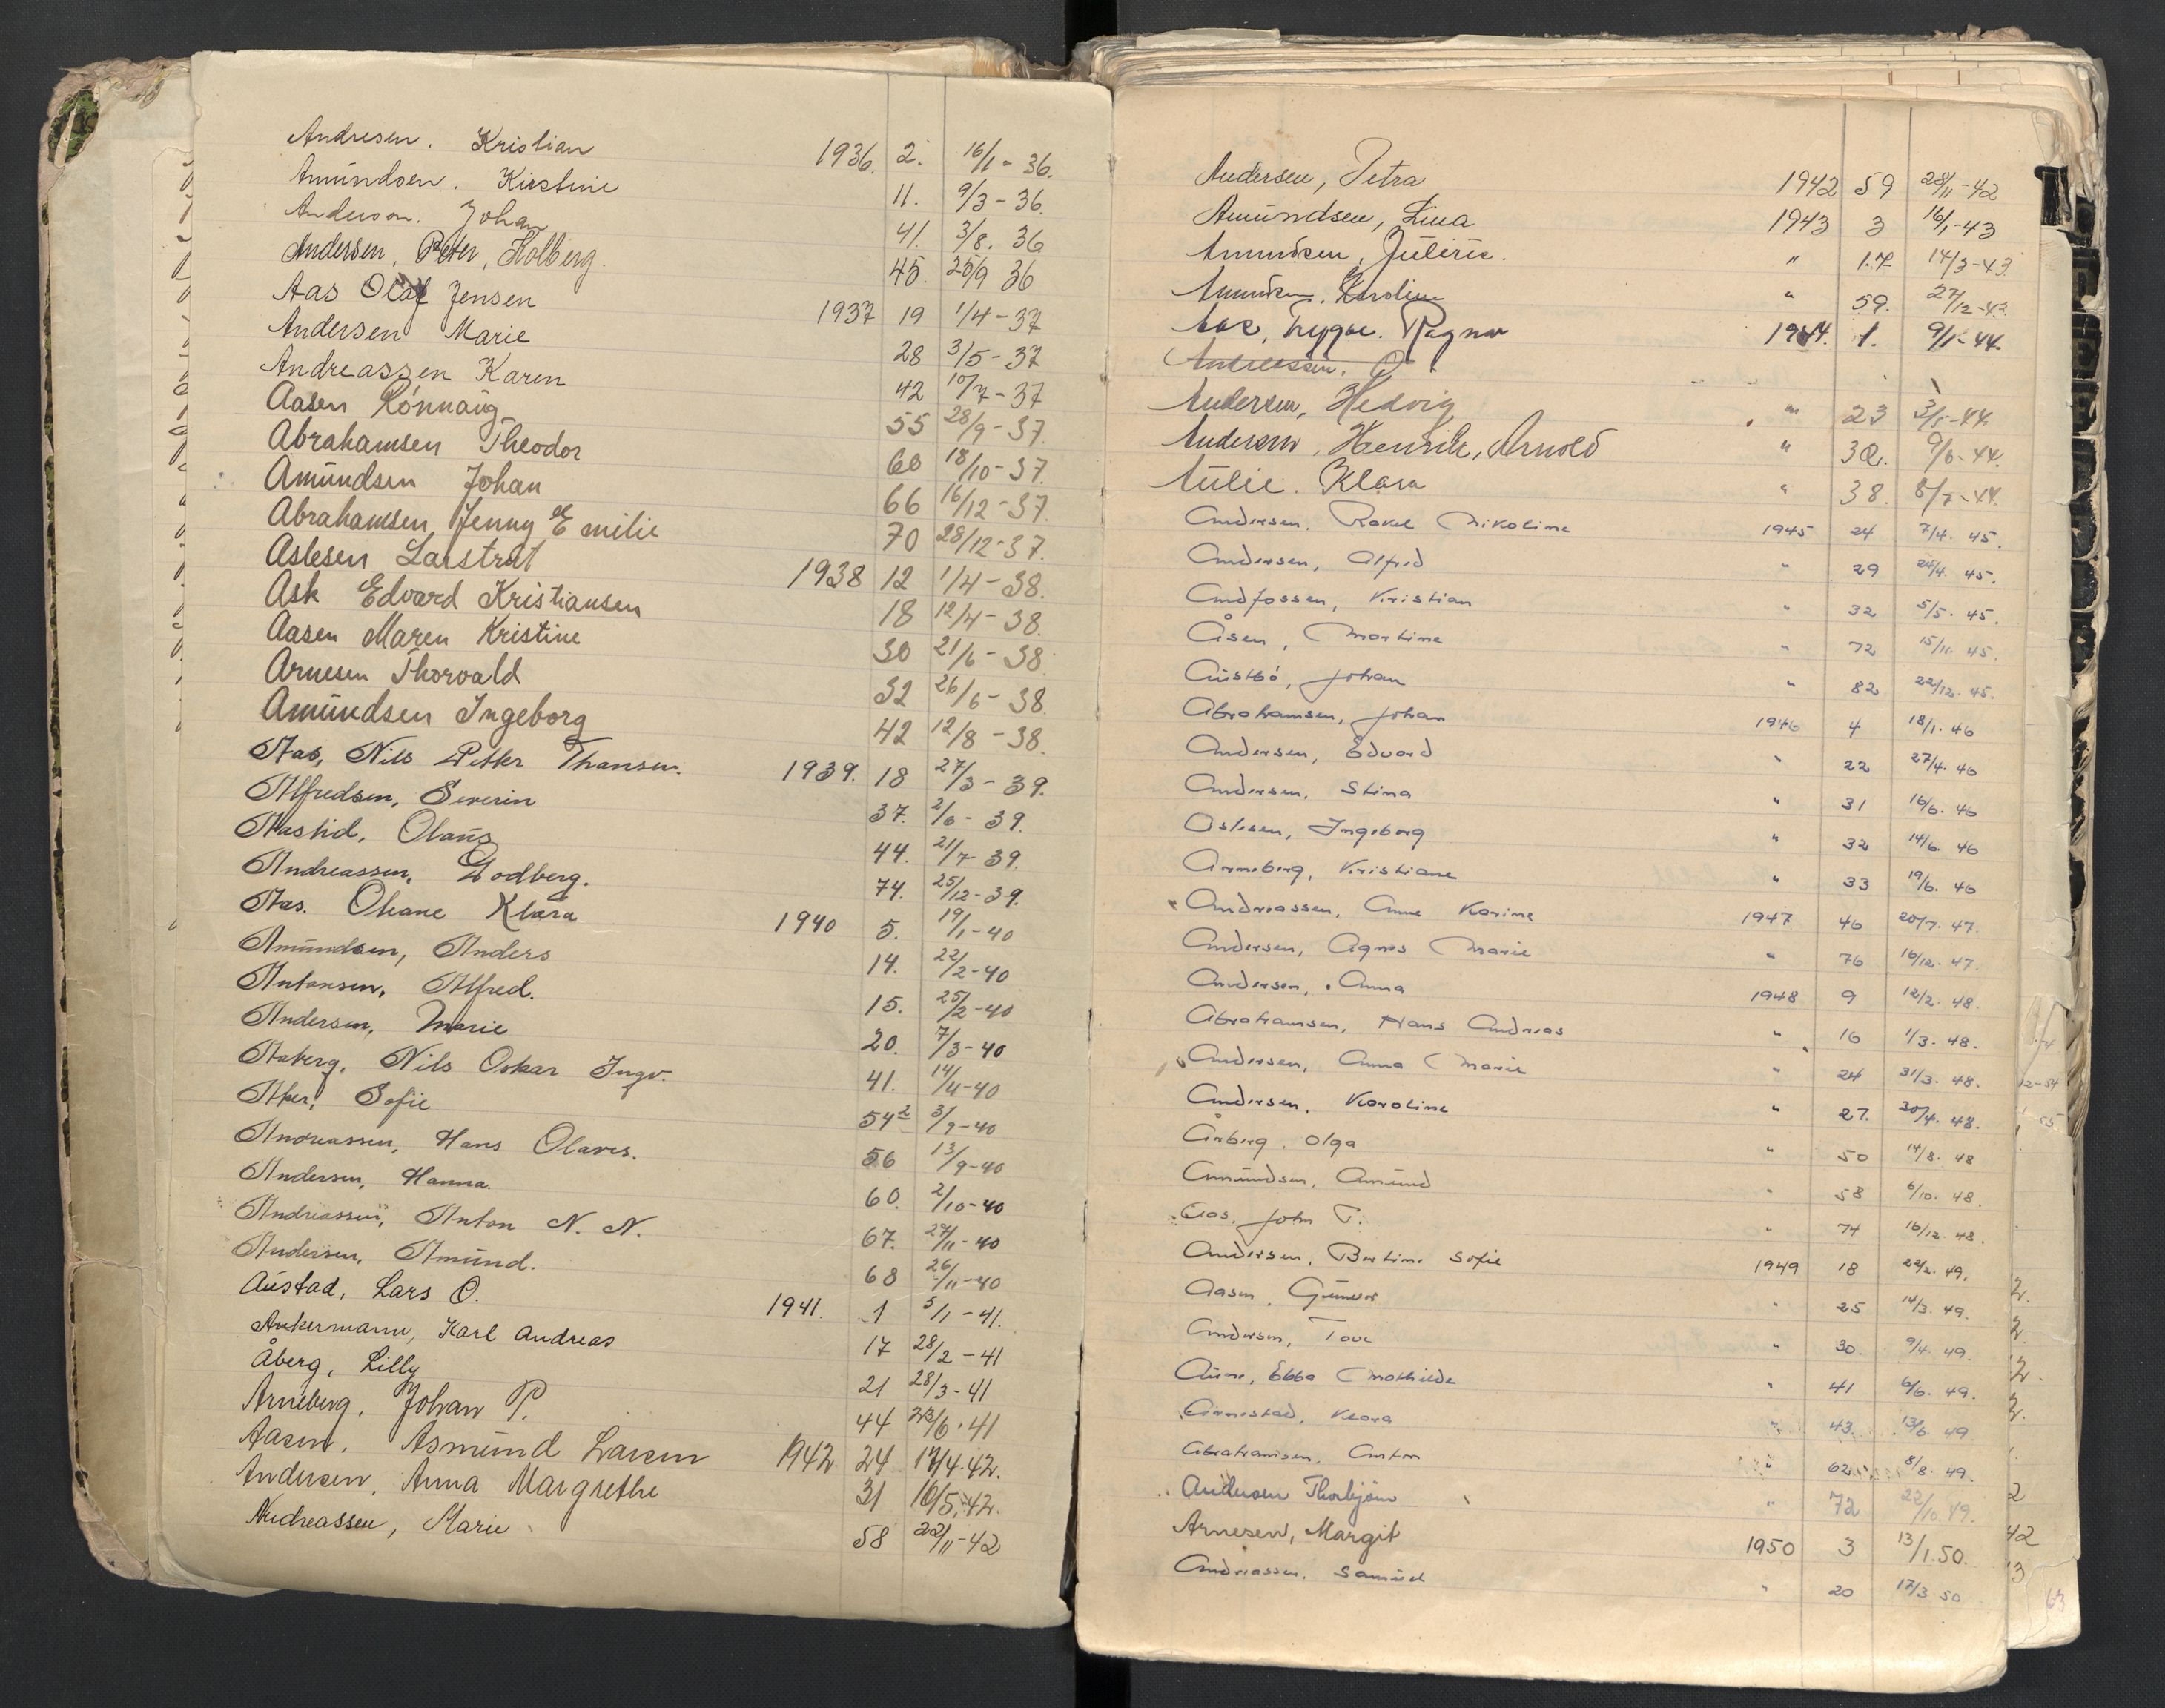 Andresen. Kristian 1936. 2. 16/1 - 36.
Amundsen. Kirstine 11. 9/3 - 36.
Anderson. Johan 41. 3/8. 36
Andersen, Peter, Holberg. 45. 25/9 36
Aas Olaf Jensen 1937 19 1/4 - 37
Andersen Marie 28 3/5 - 37
Andreassen Karen 42 10/7 - 37
Aasen Rönnaug 55 28/9 - 37.
Abrahamsen Theodor 60 18/10 - 37.
Amundsen Johan 66 16/12 - 37.
Abrahamsen, Jenny Emilie 70 28/12 - 37.
Aslesen 1938 12 1/4 - 38.
Ask Edvard Kristiansen 18 12/4 - 38.
Aasen Maren Kristine 30 21/6 - 38
Arnesen Thorvald 32 26/6 - 38
Amundsen Ingeborg 42 12/8 - 38.
Aas, Nils Petter Thansen. 1939. 18 27/3 - 39.
Alfredsen, Severin 37. 2/6 - 39.
Aastid, Olaus 44. 21/7 39.
Andreassen, Godberg. 74. 25/12 - 39.
Aas. Oleane Klara 1940 5. 19/1 - 40
Amundsen, Anders 14. 22/2 - 40
Antonsen, Alfred. 15. 25/2 - 40
Andersen, Marie 20. 7/3 - 40
Aaberg, Nils Oskar Ingv. 41. 14/4 - 40
Aker, Sofie 54 2 3/9 - 40
Andreassen, Hans Olaves. 56 13/9 - 40
Andersen, Hanna. 60. 2/10 - 40
Andreassen, Anton N. N. 67. 24/11 - 40
Andersen, Amund. 68 26/11 - 40
Austad, Lars O. 1941. 1 5/1 - 41.
Ankermann, Karl Andreas 17 28/2 - 41
Åberg, Lilly 21 28/3 - 41
Arneberg, Johan P. 44 23/6 . 41
Aasen, Asmund Larsen 1942 24 17/4. 42.
Andersen, Anna Margrethe 31 10/5. 42.
Andreassen, Marie 58 22/11 - 42
Andersen, Petra 1942 59 28/11 - 42
Amundsen, Lina 1943 3 16/1 - 43
Amundsen, Julius. " 17. 14/3 - 43.
Amundsen, Karoline " 59. 27/12 - 43.
Aas, Trygve. Ragnar 1944. 1. 9/1 - 44.
Andreassen. O
Andersen, Hedvig " 23 3/5 - 44.
Andersen, Henrik, Arnold " 32. 9/6 - 44.
Aulie. Klara " 38. 8/7 - 44.
Andersen. Rakel Nikoline 1945 24 7/4. 45.
Andersen, Alfred " 29 24/4. 45.
Andfossen, Kristian " 32 5/5. 45.
Åsen, Martine " 72 15/11. 45.
Austbö, Johan " 82 22/12. 45.
Abrahamsen, Johan 1946 4 18/1. 46
Andersen, Edvard " 22 27/4. 46
Andersen, Stina " 31 10/6. 46
Aslesen, Ingeborg " 32 14/6. 46
Arneberg, Kristiane " 33 19/6. 46
Andreassen, Anne Karine 1947 46 20/7. 47.
Andersen, Agnes Marie " 76 16/12. 47.
Andersen, Anna 1948 9 12/2. 48.
Abrahamsen, Hans Andreas " 16 1/3. 48.
Andersen, Anna Marie " 24 31/3. 48.
Andersen, Karoline " 27. 30/4. 48.
Årberg, Olga " 50 14/8. 48
Amundsen, Amund " 58 6/10. 48.
Aas, John P. " 74 16/12. 48.
Andersen, Bertine Sofie 1949 18 22/2. 49.
Aasen, Gunvor " 25 14/3. 49.
Andersen, Tove " 30. 9/4. 49.
Aune, Ebba Mathilde " 41 6/6. 49.
Aamestad, Klara " 43. 13/6. 49
Abrahamsen, Anton " 62 8/8. 49.
Andersen Thorbjörn " 72 22/10. 49.
Arnesen, Margit 1950 3 13/1. 50.
Andreassen, Samuel " 20 17/3. 50